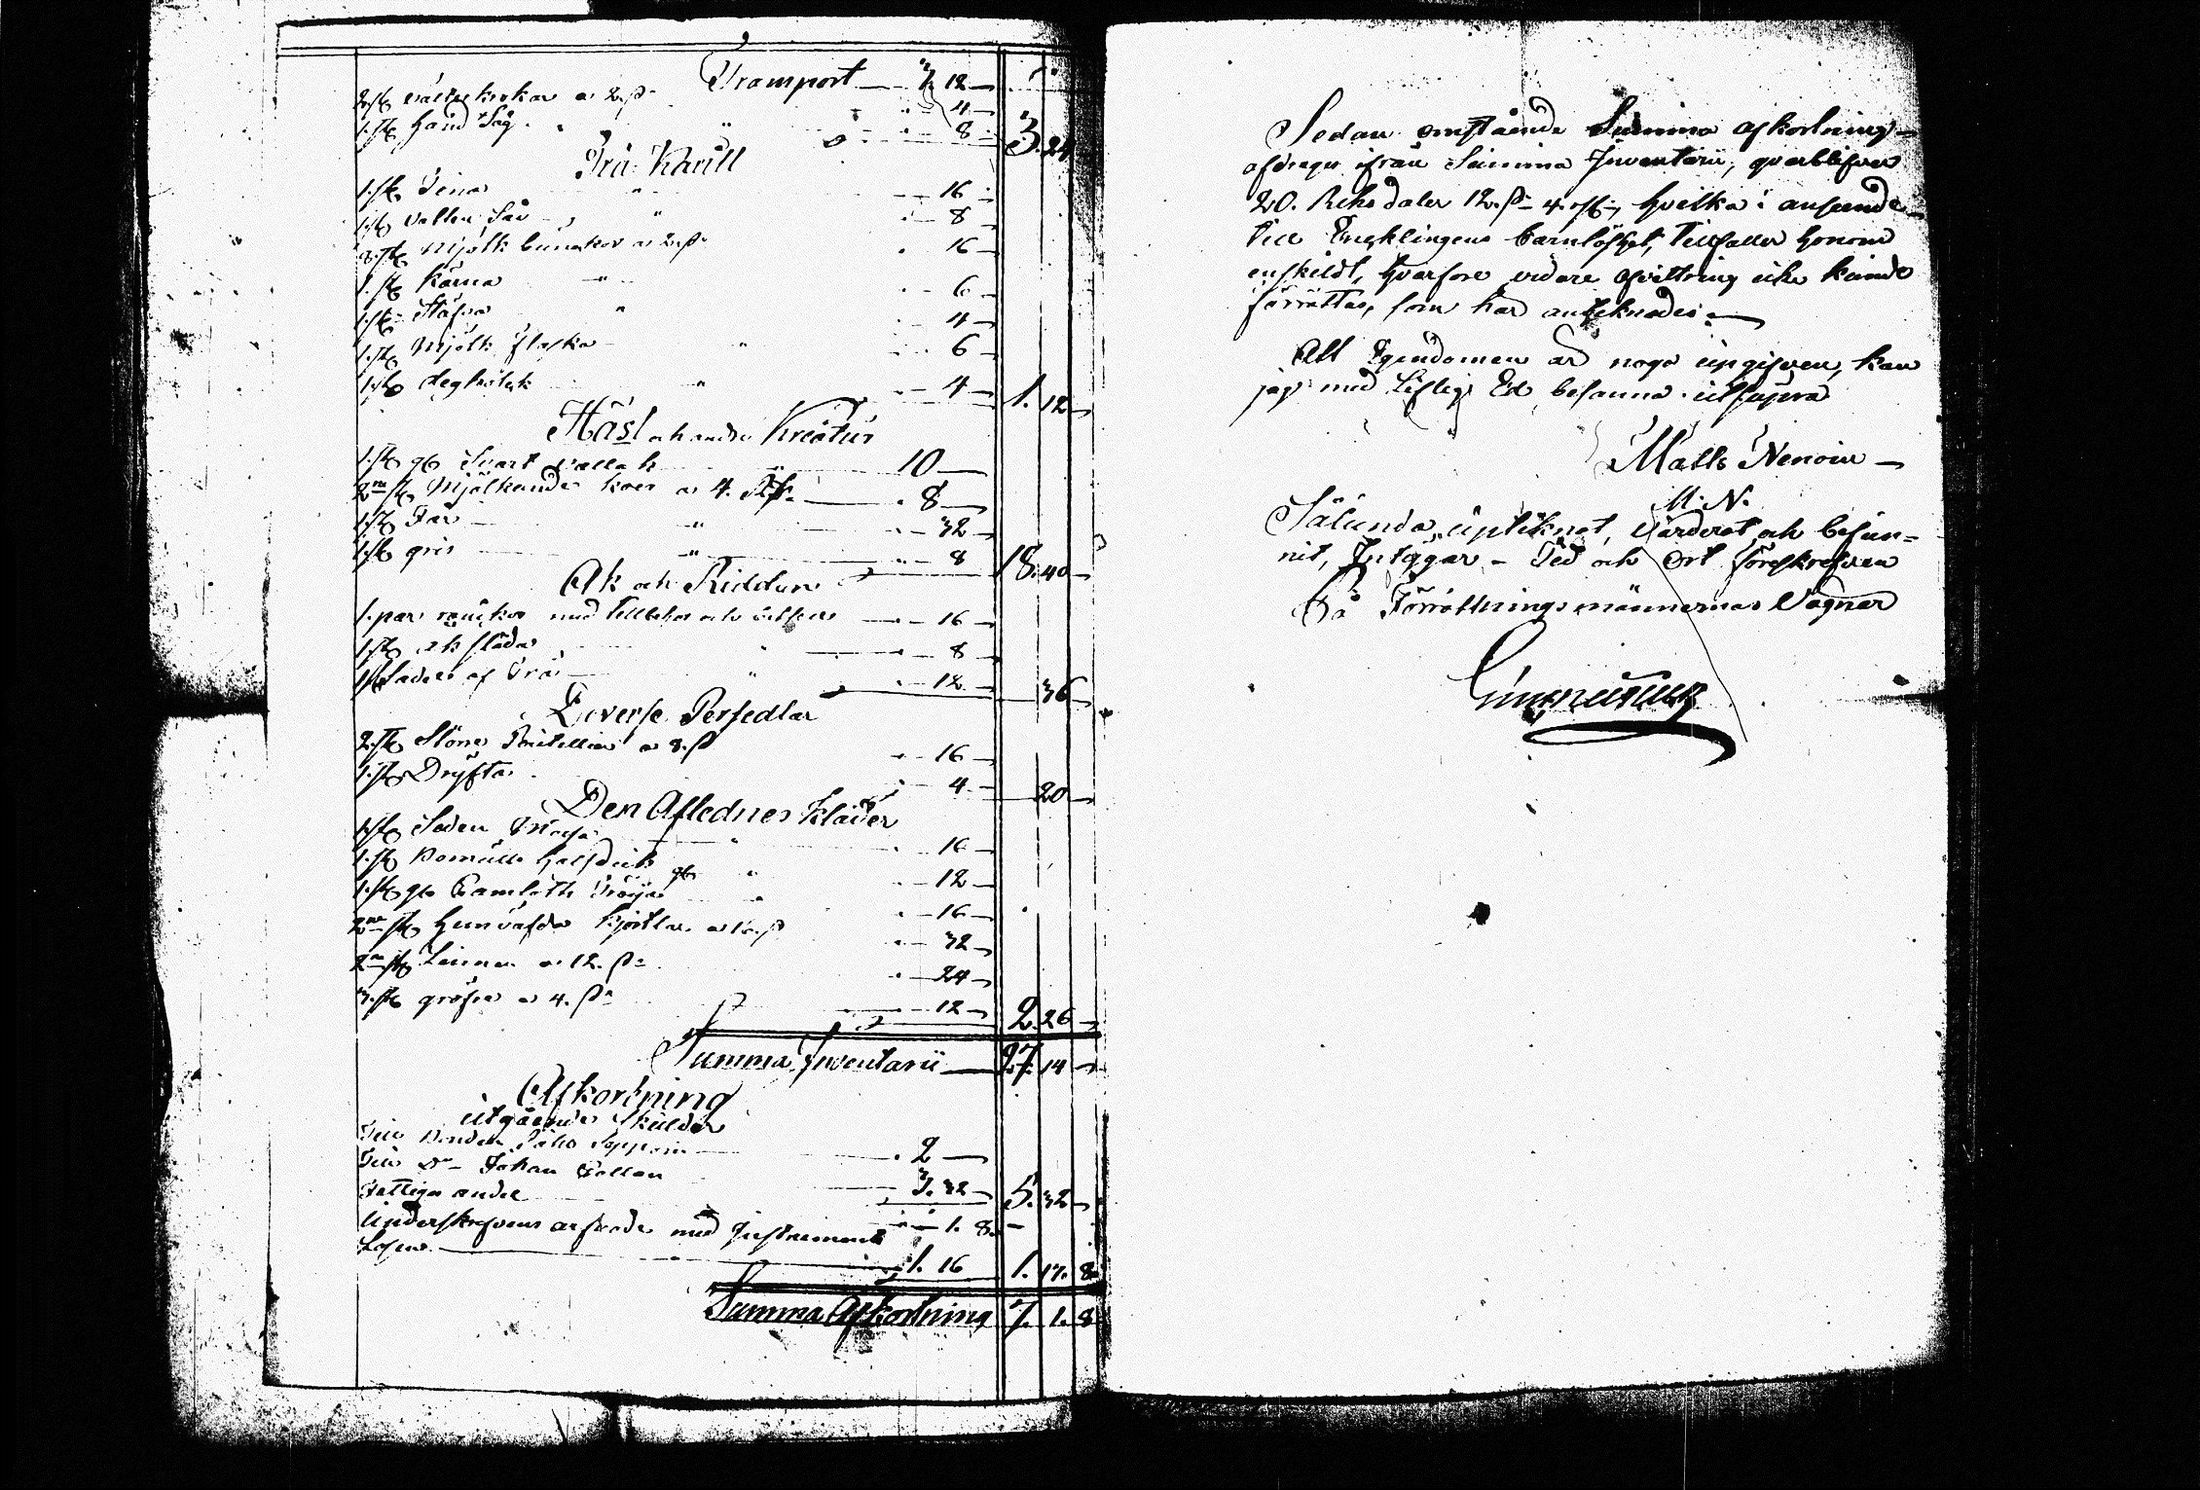 Transport — 3. 12 —
2 st. vatten krokar a 2 ß " — 4 —
1. st. hand Såg . " — 8 — 3. 24
Trä Kärill
1. st. Tina " — 16 —
1 st. vatten Så " — 8 —
8. st. Mjölk bunckor a 2 ß . 16 —
1. st. Kärna " — 6 —
1. st. Stäfva " — 4 —
1. st. Mjölk flaska " — 6 —
1 st. degtråg " — 4 — 1. 12 —
Häst och andre Kreatur
1. st. gl Svart vallack " 10 —
2ne st. Mjölkande koer a 4. Rd . 8 —
1. st. Får " — 32 —
1. st. gris " — 8 18. 40 —
Åk och Riddon
1. par med tillbehör och — 16 —
1 st. åk släda " — 8 —
1 st. Sadel af Trä " — 12 — 36 —
Diverse Persedlar
2. st. Stöne Buteller a 8. ß — 16 —
1. st. Dryfta — 4 — 20 —
Den Aflednes Kläder
1 st. Siden Mössa " — 16 —
1. st. Bomulls halsduk gl " — 12 —
1. st. gl Camlotts Tröija " — 16 —
2ne st. hemväfda Kjortlar a 16 ß — 32 —
2ne st. Linnen a 12. ß — 24 —
3. st. gröfre a 4. ß — 12 — 2. 26 —
Summa Inventarii — 27. 14 —
Afkortning
utgående skulder
Till Bonden — . 2 —
Till Do Johan — 3. 32 — 5. 32 —
Fattige andel — 1. 8. —
Underskrefvens arfvode med
Lösen — 1. 16 1. 17. 8
Summa Afkortning 7. 1. 8
Sedan omstående Summa afkortning
afdrages ifrån Summa Inventarii, qvarblifver
20. Riksdaler 12. ß 4. rst, hvilka i anseende
till Encklingens barnlöshet, tillfaller honom
enskildt, hvarföre vidare afvittring icke kunde
förrättas, som här anteknades. —
Att Egendomen är noga upgifven, kan
jag med Liflig Ed besanna utsupra
Matts Nenoin —
M. N.
Sålunda upteknat, värderat och befun=
nit, Intygar — Tid och Ort föreskrefven
På Förrättningsmännernas Vägnar